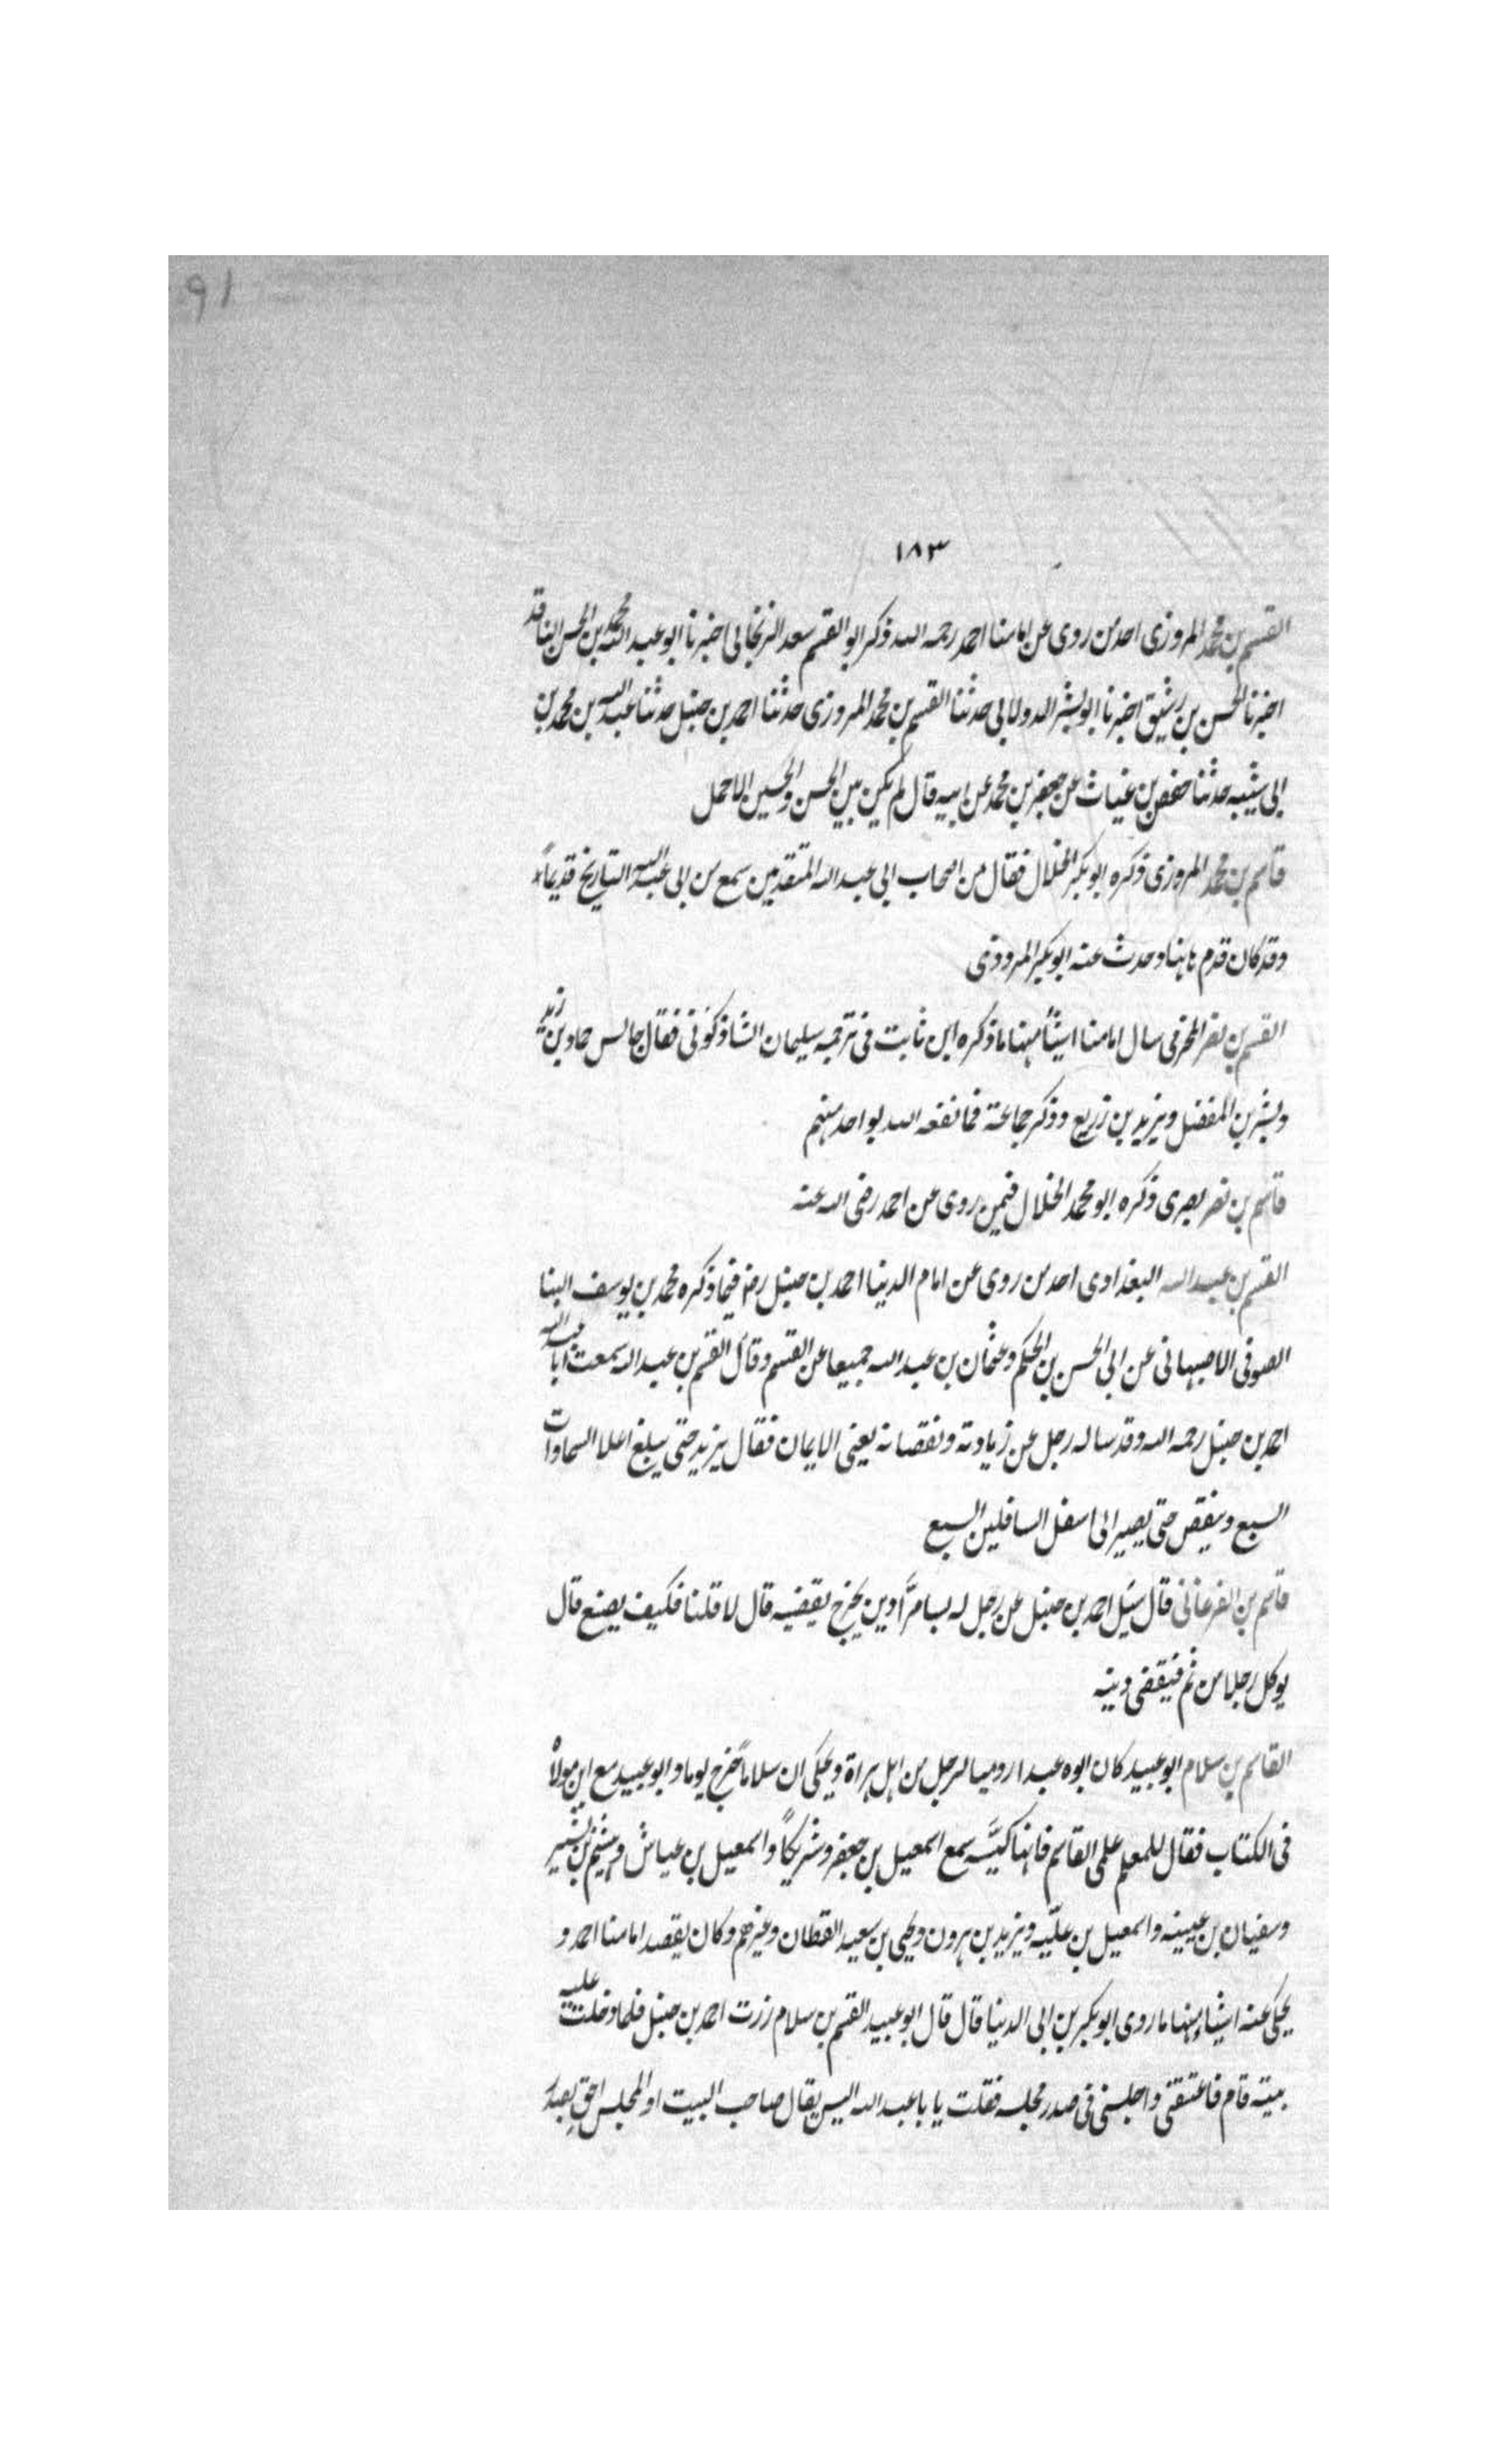 91
١٨٣
القسم بن محمد المروزى احد من روى عن امامنا احمد رحمه الله ذكر ابو القسم سعد الزنجانى اخبرنا ابو عبد الله محمد بن الحسن الناقد
اخبرنا الحسن بن رشيق اخبرنا ابو بشر الدولابى حدثنا القسم بن محمد المروزى حدثنا احمد بن حنبل حدثنا عبد الله بن محمد بن
ابى شيبه حدثنا حفص بن غياث عن جعفر بن محمد عن ابيه قال لم يكن بين الحسن والحسين الا حمل
قاسم بن محمد المروزى ذكره ابو بكر الخلال فقال من اصحاب ابى عبد الله المتقدمين سمع من ابى عبد الله التاريخ قديماً
وقد كان قدم هاهنا وحدث عنه ابو بكر المروذى
القسم بن نصر المخرمى سال امامنا اشيأ منها ما ذكره ابن ثابت فى ترجمه سليمان الشاذكونى فقال جالس حماد بن زيد
وبشر بن المفضل ويزيد بن زريع وذكر جماعة فما نفعه الله بواحد منهم
قاسم بن نصر بصرى ذكره ابو محمد الخلال فيمن روى عن احمد رضى الله عنه
القسم بن عبد الله البغداوى احد من روى عن امام الدنيا احمد بن حنبل رضه فيما ذكره محمد بن يوسف البنا
الصوفى الاصبهانى عن ابى الحسن بن الحكم وعثمان بن عبد الله جميعا عن القسم وقال القسم بن عبد الله سمعت ابا عبد الله
احمد بن حنبل رحمه الله وقد ساله رجل عن زيادته ونقصانه يعنى الايمان فقال يزيد حتى يبلغ اعلا السماوات
السبع وينقص حتى يصير الى اسفل السافلين السبع
قاسم بن الفرغانى قال سئل احمد بن حنبل عن رجل له بسامرّا دين يخرج يقضيه قال لا قلنا فكيف يصنع قال
يوكل رجلا من ثم فيقضى دينه
القاسم بن سلام ابو عبيد كان ابوه عبدا روميا لرجل من اهل هراة ويحكى ان سلاماً خرج يوما وابو عبيد مع ابن مولاه
فى الكتاب فقال للمعلم علمى القاسم فانها كيّسه سمع اسمعيل بن جعفر وشريكاً واسمعيل بن عياش وهشيم بن بشير
وسفيان بن عيينه واسمعيل بن عليّه ويزيد بن هرون ويحيى بن سعيد القطان وغيرهم وكان يقصد امامنا احمد و
يحكى عنه اشياء منها ما روى ابو بكر بن ابى الدنيا قال قال ابو عبيد القسم بن سلام زرت احمد بن حنبل فلما دخلت عليه
بيته قام فاعتنقنى واجلسنى فى صدر مجلسه فقلت يا با عبد الله اليس يقال صاحب البيت او المجلس احق بصدر